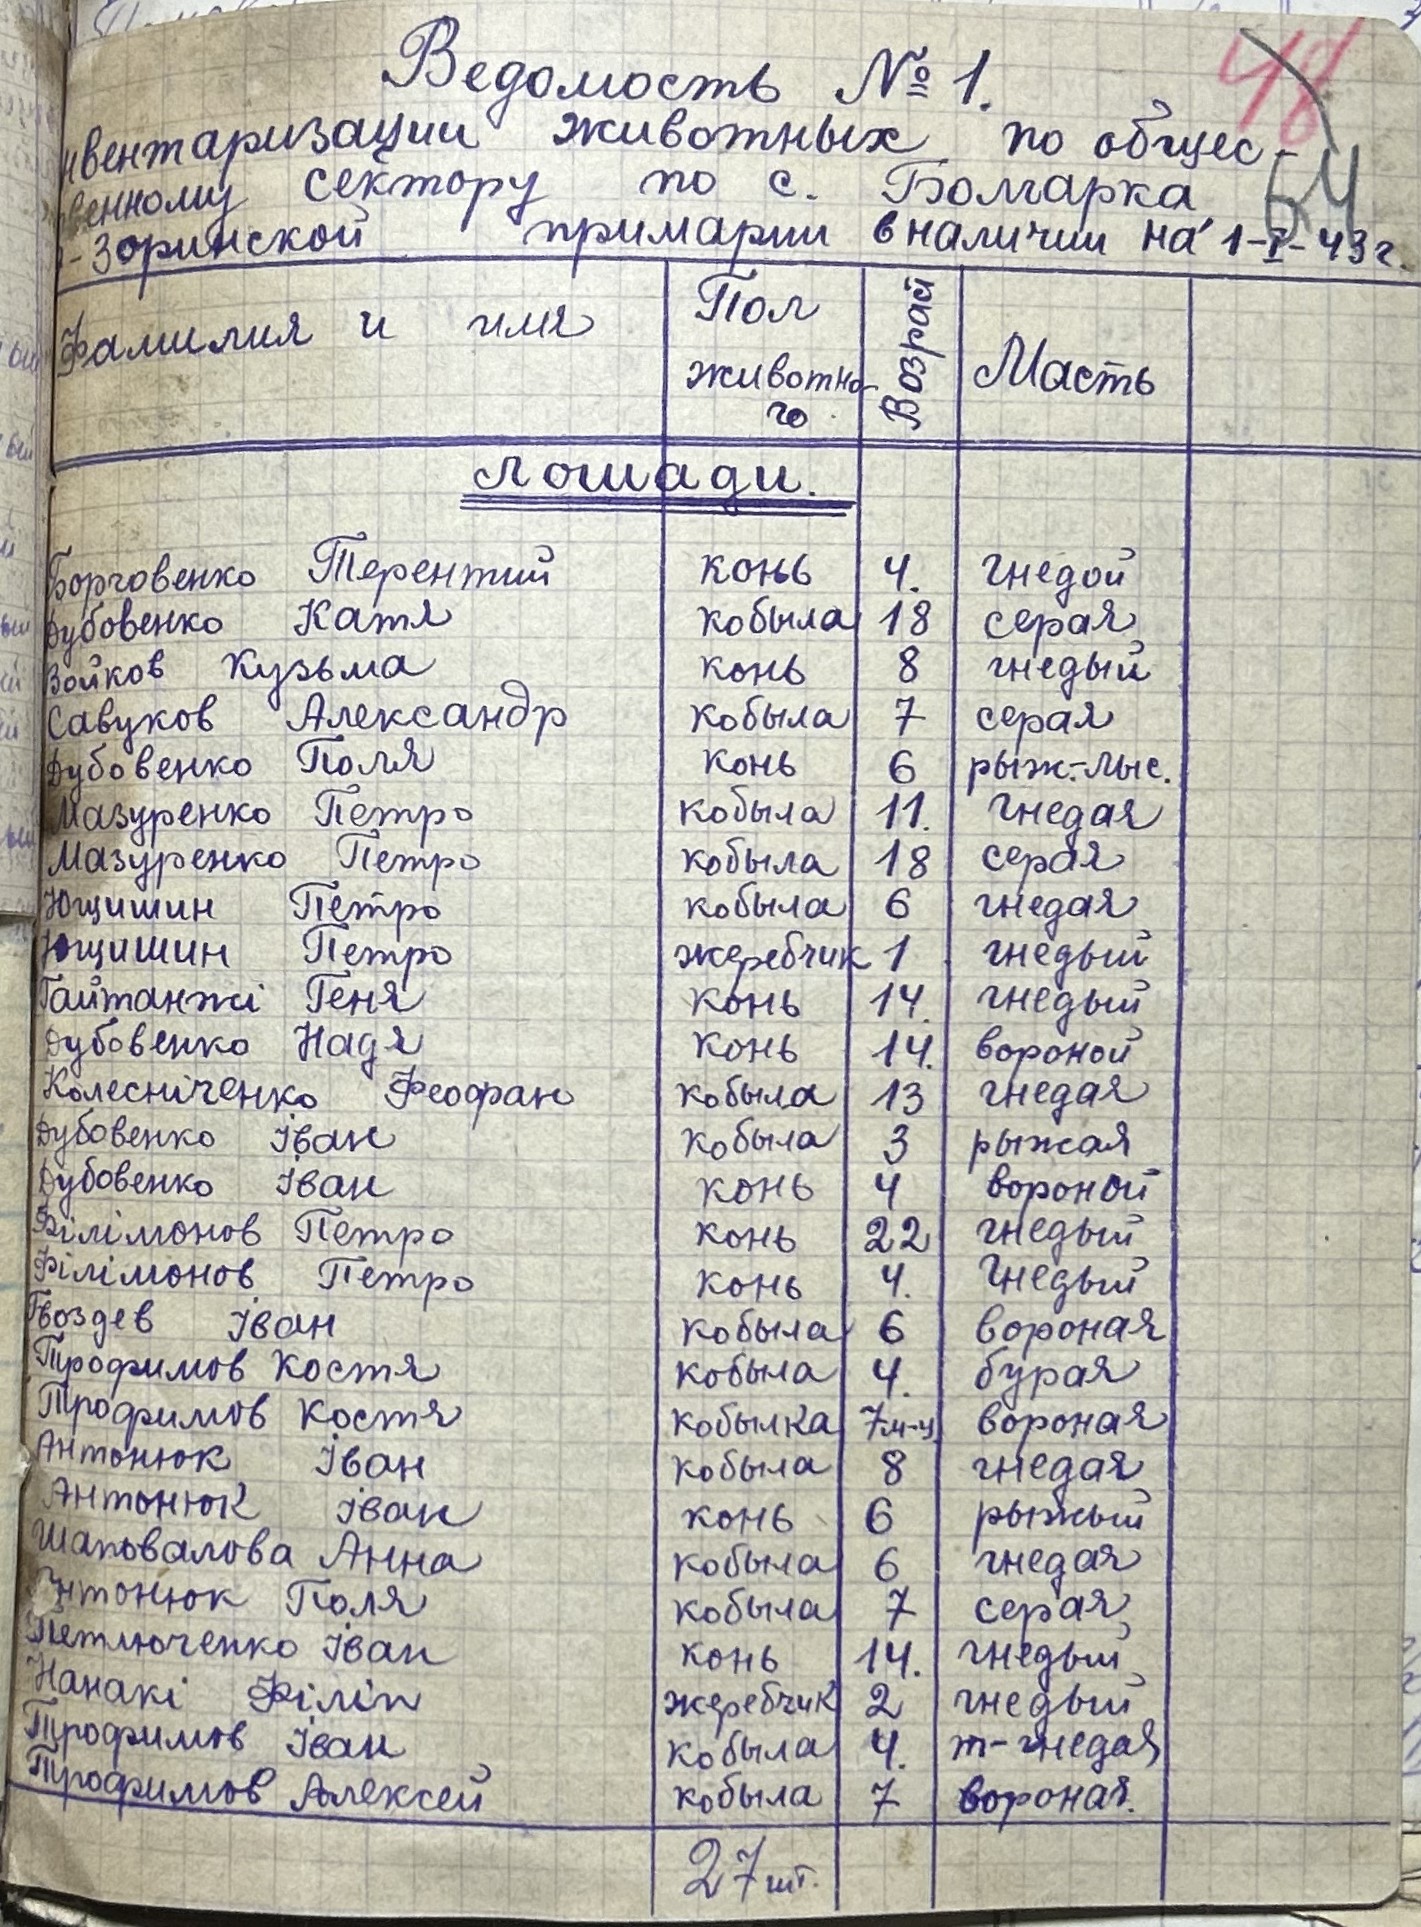 Ведомость № 1.
инвентаризации животных по общес-
твенному сектору по с. Болгарка
-Зоринской примарии в наличии на 1-I-43 г.
48
54
Фамилия и имя | Пол животно-го | Возрай | Масть
Лошади.
Борговенко Терентий конь 4. гнедой
Дубовенко Катя кобыла 18 серая
Войков Кузьма конь 8 гнедый
Савуков Александр кобыла 7 серая
Дубовенко Поля конь 6 рыж.-лыс.
Мазуренко Петро кобыла 11. гнедая
Мазуренко Петро кобыла 18 серая
Ющишин Петро кобыла 6 гнедая
Ющишин Петро жеребчик 1 гнедый
Гайтанжі Геня конь 14. гнедый
Дубовенко Надя конь 14. вороной
Колесніченко Феофан кобыла 13 гнедая
Дубовенко Іван кобыла 3 рыжая
Дубовенко Іван конь 4 вороной
Філімонов Петро конь 22 гнедый
Філімонов Петро конь 4. гнедый
Гвоздев Іван кобыла 6 вороная
Трофимов Костя кобыла 4. бурая
Трофимов Костя кобылка 7 м-ц. вороная
Антонюк Іван кобыла 8 гнедая
Антонюк Іван конь 6 рыжый
Шаповалова Анна кобыла 6 гнедая
Антонюк Поля кобыла 7 серая
Петлюченко Іван конь 14. гнедый
Нанакі Філіп жеребчик 2 гнедый
Трофимов Іван кобыла 4. т-гнедая
Трофимов Алексей кобыла 7 вороная.
27 шт.